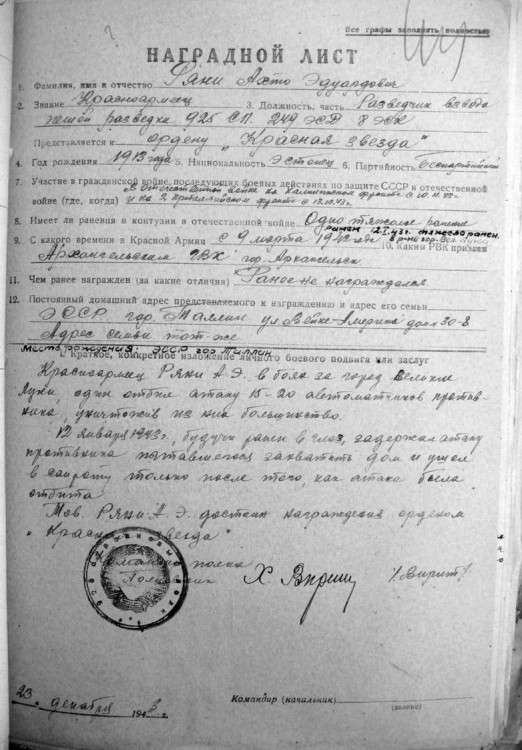 Все графы заполнять полностью
НАГРАДНОЙ ЛИСТ
1. Фамилия, имя и отчество Ряни Ахто Эдуардович
2. Звание Красноармеец 3. Должность, часть Разведчик взвода
пешей разведки 925 СП. 249 ЭСД 8 ЭСК
Представляется к ордену "Красная звезда"
4. Год рождения 1913 года 5. Национальность Эстонец 6. Партийность Беспартийный
7. Участие в гражданской войне, последующих боевых действиях по защите СССР и отечественной
войне (где, когда) и на 2 Прибалтийском фронте с
8. Имеет ли ранения и контузии в отечественной войне Одно тяжелое ранение
ранен 12.I.43г. тяжело ранен
9. С какого времени в Красной Армии с 9 марта 1942 года 10. Каким РВК призван
Архангельским ГВК гор. Архангельск
11. Чем ранее награжден (за какие отличия) Ранее не награждался
12. Постоянный домашний адрес представляемого к награждению и адрес его семьи
ЭССР гор. Таллин ул. Вейке-Америка дом 30-8
Адрес семьи тот-же
Место рождения: ЭССР гор Таллин
I. Краткое, конкретное изложение личного боевого подвига или заслуг
Красноармеец Ряни А.Э. в боях за город Великие
Луки, один отбил атаку 15-20 автоматчиков против-
ника, уничтожив из них большинство.
12 января 1943г., будучи ранен в глаз, задержал атаку
противника пытавшегося захватить дом и ушел
в санроту только после того, как атака была
отбита.
Тов. Ряни А.Э. достоин награждения орденом
"Красная звезда"
Командир полка
Полковник Х. Вирит /Вирит/
23 декабря 1943г.
Командир (начальник)